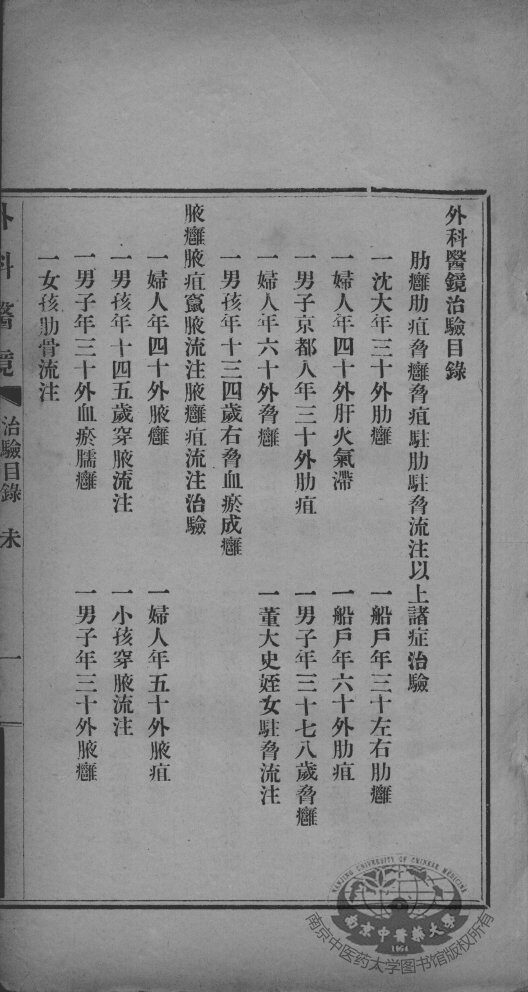 外科醫鏡治驗目錄
肋癰肋疽脅癰脅疽駐肋駐脅流注以上諸症治驗
一沈大年三十外肋癰
一船戶年三十左右肋癰
一婦人年四十外肝火氣滯
一船戶年六十外肋疽
一男子京都人年三十外肋疽
一男子年三十七八歲脅癰
一婦人年六十外脅癰
一董大史姪女駐脅流注
一男孩年十三四歲右脅血瘀成癰
腋癰腋疽竄腋流注腋癰疽流注治驗
一婦人年四十外腋癰
一婦人年五十外腋疽
一男孩年十四五歲穿腋流注
一小孩穿腋流注
一男子年三十外血瘀臑癰
一男子年三十外腋癰
一女孩肋骨流注
外科醫鏡
治驗目錄
未
一
NANJING UNIVERSITY OF CHINESE MEDICINE
南京中醫藥大學
1954
南京中医药大学图书馆版权所有